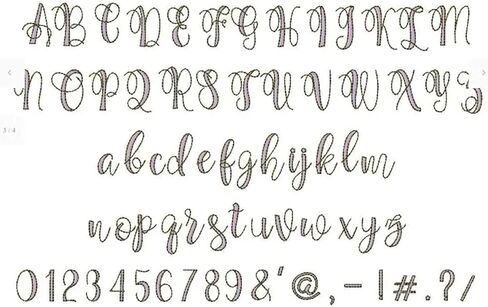 ABCDEFGHIJKLM
NOPQRSTUVWXYZ
3 / 4
abcdefghijklm
nopqrstuvwxyz
0123456789&'@,-!#.?/